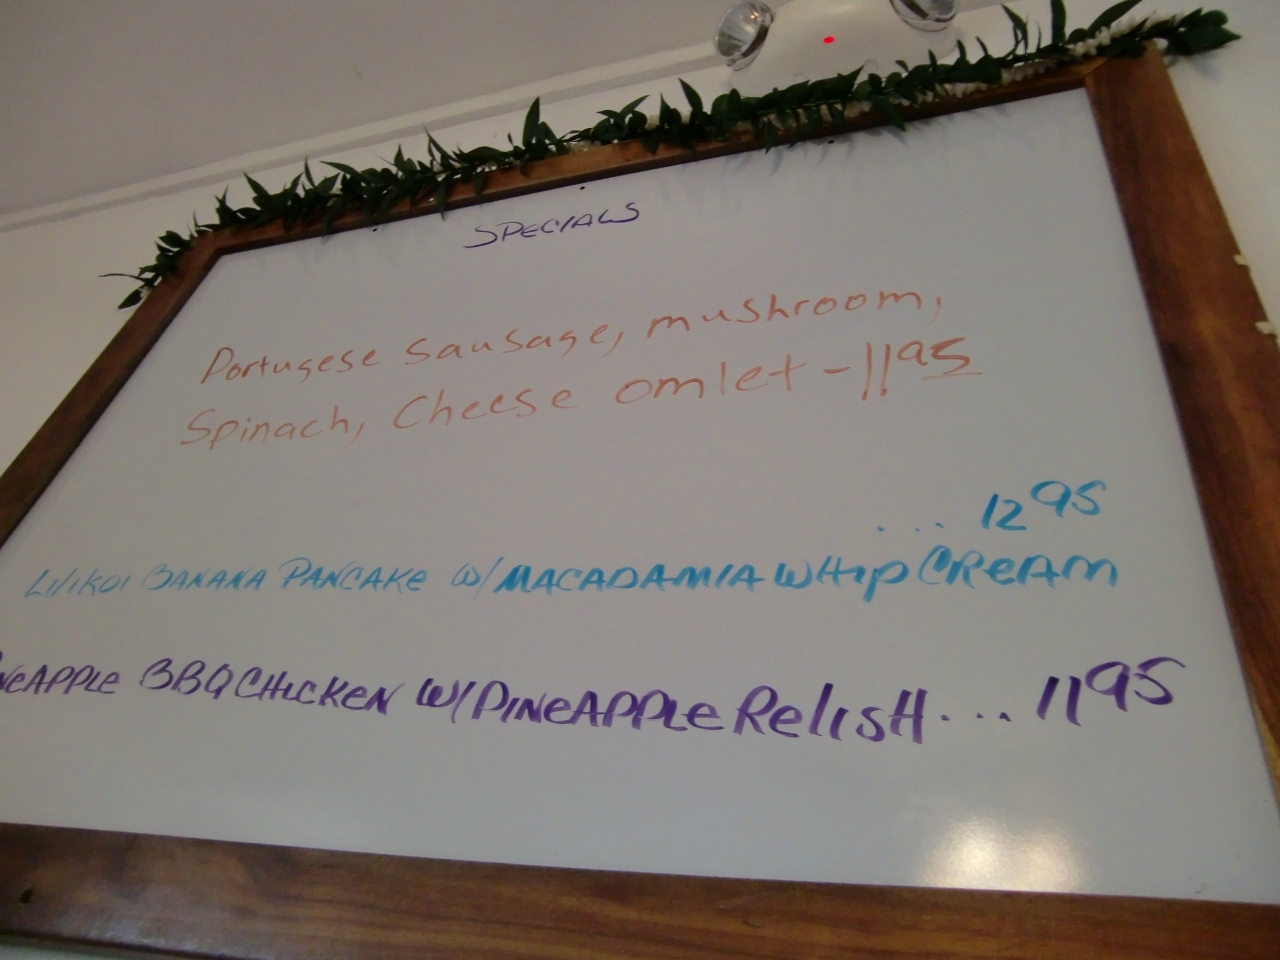 SPECIALS
Portugese Sausage, mushroom,
Spinach, Cheese omlet - 11 95
... 12 95
Lilikoi BANANA PANCAKE W/ MACADAMIA WHip CReAM
NeAPPLe BBQ CHiCKeN W/ PiNeAPPLe ReliSH... 11 95